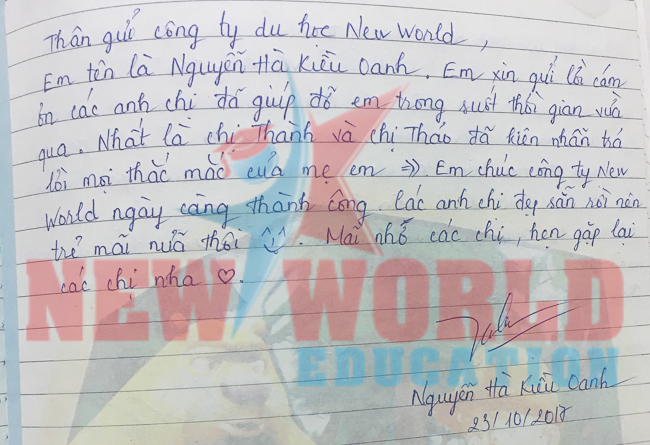 Thân gửi công ty du học New World,
Em tên là Nguyễn Hà Kiều Oanh. Em xin gửi lời cám
ơn các anh chị đã giúp đỡ em trong suốt thời gian vừa
qua. Nhất là chị Thanh và chị Thảo đã kiên nhẫn trả
lời mọi thắc mắc của mẹ em => Em chúc công ty New
World ngày càng thành công. Các anh chị đẹp sẵn rồi nên
trẻ mãi nữa thôi ^^. Mãi nhớ các chị, hẹn gặp lại
các chị nha ♡.
NEW WORLD
EDUCATION
Nguyễn Hà Kiều Oanh
23/10/2017